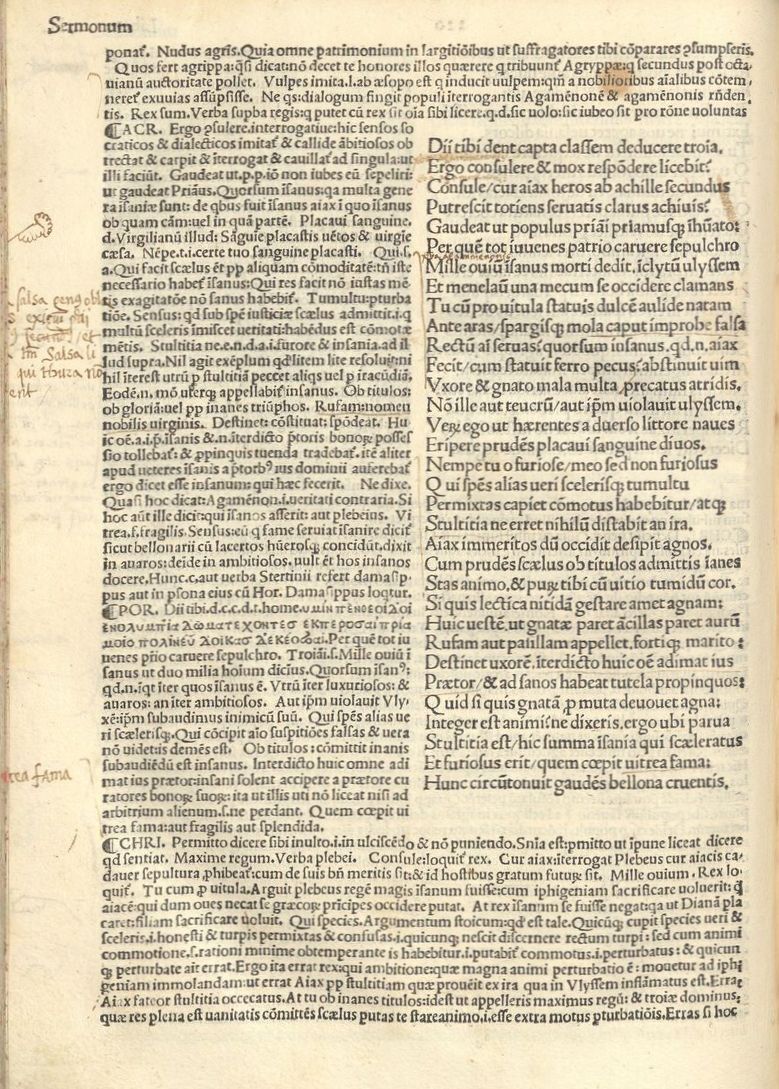 Sermonum
ponat̃. Nudus agris. Quia omne patrimonium in largitiõibus ut suffragatores tibi cõparares ↄsumpseris.
Quos fert agrippa: q̃si dicat: nõ decet te honores illos quærere q tribuunt̃ Agryppæ: q̃ secundus post octa
uianũ auctoritate pollet. Vulpes imita. l. ab æsopo est q inducit uulpem: qm̃ a nobilioribus aĩalibus cõtem,
neret̃ exuuias assũpsisse. Ne qs: dialogum fingit populi ĩterrogantis Agamẽnonẽ & agamẽnonis rñden,
tis. Rex sum. Verba supba regis: q putet cũ rex sit oĩa sibi licere. q. d. sic uolo: sic iubeo sit pro rõne uoluntas
¶ACR. Ergo ↄsulere. interrogatiue: hic sensos so
craticos & dialecticos imitat̃ & callide ãbitiosos ob
trectat & carpit & ĩterrogat & cauillat̃ ad singula: ut
illi faciũt. Gaudeat ut. p. p. iõ non iubes eũ sepeliri:
ut gaudeat Priãus. Quorsum isanus: qa multa gene
ra isaniæ sunt: de qbus fuit isanus aiax ĩ quo isanus
ob quam cãm: uel in quã partẽ. Placaui sanguine.
d. Virgilianũ illud: Sãguie placastis uẽtos & uirgĩe
cæsa. Nẽpe. t. i. certe tuo sanguine placasti. Qui. s.
a. Qui facit scælus ẽt pp aliquam cõmoditatẽ: tñ iste
necessario habet̃ isanus: Qui res facit nõ iustas mẽ
tis exagitatõe nõ sanus habebit̃. Tumultu: pturba
tiõe. Sensus: qd sub spẽ iusticiæ scælus admittit. i. q
multũ sceleris imiscet ueritati: habẽdus est cõmotæ
mẽtis. Stultitia ne. e. n. d. a. i. furore & insania. ad il
lud supra. Nil agit exẽplum qd̃ litem lite resoluit: ni
hil ĩterest utrũ p stultitiã peccet aliqs uel p iracũdiã.
Eodẽ. n. mõ uterq; appellabit̃ insanus. Ob titulos:
ob gloriã: uel pp inanes triũphos. Rufam: nomeu
nobilis uirginis. Destinet: cõstituat: spõdeat. Hu
ic oẽ. a. i. p̃. isanis & .n. ĩterdicto p̃toris bonoꝝ posses
sio tollebat̃: & ꝓpinquis tuenda tradebat̃. itẽ aliter
apud ueteres isanis a p̃torb⁹ ius dominii auferebat̃
ergo dicet esse insanum: qui hæc fecerit. Ne dixe.
Quasi hoc dicat: Agamẽnon. i. ueritati contraria. Si
hoc aut̃ ille dicit: qui isanos asserit: aut plebeius. Vi
trea. f. fragilis. Sensus: eũ q fame seruiat isanire dicit̃
sicut bellonarii cũ lacertos hũerosq; concidũt. dixit
in auaros: deĩde in ambitiosos. uult ẽt hos insanos
docere. Hunc. c. aut uerba Stertinii refert damasip,
pus aut in psona eius cũ Hor. Damasippus loqtur.
¶POR. Dii tibi. d. c. c. d. t. home.
Per quẽ tot iu
uenes p̃rio caruere sepulchro. Troiãi. s. Mille ouiũ ĩ
sanus ut duo milia hoĩum diciꝰ. Quorsum isan⁹:
qd. n. ĩqt iter quos isanus ẽ. Vtrũ ĩter luxuriosos: &
auaros: an iter ambitiosos. Aut ip̃m uiolauit Vly,
xẽ: ip̃m subaudimus inimicũ suũ. Qui spẽs alias ue
ri scælerisq;. Qui cõcipit aĩo suspitiões falsas & uera
nõ uidet: is demẽs est. Ob titulos: cõmittit inanis
subaudiẽdũ est insanus. Interdicto huic omne adi
mat ius prætor: insani solent accipere a prætore cu
ratores bonoꝝ suoꝝ: ita ut illis uti nõ liceat nisi ad
arbitrium alienum. s. ne perdant. Quem cœpit ui
trea fama: aut fragilis aut splendida.
Dii tibi dent capta classem deducere troia.
Ergo consulere & mox respõdere licebit?
Consule/cur aiax heros ab achille secundus
Putrescit totiens seruatis clarus achiuis?
Gaudeat ut populus priãi priamusq; ĩhũato:
Per quẽ tot iuuenes patrio caruere sepulchro
Mille ouiũ ĩsanus morti dedit. ĩclytũ ulyssem
Et menelaũ una mecum se occidere clamans
Tu cũ pro uitula statuis dulcẽ aulide natam
Ante aras/spargisq; mola caput improbe salsa
Rectũ aĩ seruas? quorsum insanus. qd. n. aiax
Fecit/cum strauit ferro pecus? abstinuit uim
Vxore & gnato mala multa precatus atridis.
Nõ ille aut teucrũ/aut ip̃m uiolauit ulyssem.
Veꝝ ego ut hærentes aduerso littore naues
Eripere prudẽs placaui sanguine diuos.
Nempe tu o furiose/meo sed non furiosus
Qui spẽs alias ueri scelerisq; tumultu
Permixtas capiet cõmotus habebitur/atq;
Stultitia ne erret nihilũ distabit an ira.
Aiax immeritos dũ occidit desipit agnos.
Cum prudẽs scælus ob titulos admittis ĩanes
Stas animo, & puꝝ tibi cũ uitio tumidũ cor.
Si quis lectica nitidã gestare amet agnam:
Huic uestẽ. ut gnatæ paret ãcillas paret aurũ
Rufam aut pusillam appellet. fortiq; marito:
Destinet uxorẽ. ĩterdicto huic oẽ adimat ius
Prætor/& ad sanos habeat tutela propinquos:
Quid si quis gnatã ꝓ muta deuouet agna:
Integer est animi? ne dixeris. ergo ubi parua
Stultitia est/hic summa ĩsania qui scæleratus
Et furiosus erit/quem cœpit uitrea fama:
Hunc circũtonuit gaudẽs bellona cruentis.
¶CHRI. Permitto dicere sibi inulto. i. in ulciscẽdo & nõ puniendo. Sñia est: pmitto ut ĩpune liceat dicere
qd sentiat. Maxime regum. Verba plebei. Consule: loquit̃ rex. Cur aiax: ĩterrogat Plebeus cur aiacis ca,
dauer sepultura ꝓhibeat̃: cum de suis bñ meritis sit: & id hostibus gratum futuꝝ sit. Mille ouium. Rex lo,
quit̃. Tu cum ꝓ uitula. Arguit plebeus regẽ magis ĩsanum fuisse: cum iphigeniam sacrificare uoluerit: q̃
aiacẽ: qui dum oues necat se græcoꝝ prĩcipes occidere putat. At rex ĩsanum se fuisse negat: qa ut Dianã pla
caret: filiam sacrificare uoluit. Qui species. Argumentum stoicum: qd̃ est tale. Quicũq; cupit species ueri &
sceleris. i. honesti & turpis permixtas & confusas. i. quicunq; nescit discernere rectum turpi: sed cum animi
commotione. s. rationi minime obtemperante is habebitur. i. putabit̃ commotus. i. perturbatus: & quicun
q; perturbate ait errat. Ergo ita errat rex: qui ambitione: quæ magna animi perturbatio ẽ: mouetur ad iphi
geniam immolandam: ut errat Aiax pp stultitiam quæ prouẽit ex ira qua in Vlyssem inflãmatus est. Erra,
Aiax fateor stultitia occecatus. At tu ob inanes titulos: idest ut appelleris maximus regũ: & troiæ dominus:
quæ res plena est uanitatis cõmittẽs scælus putas te stare animo. i. esse extra motus pturbatiõis. Erras si hoc